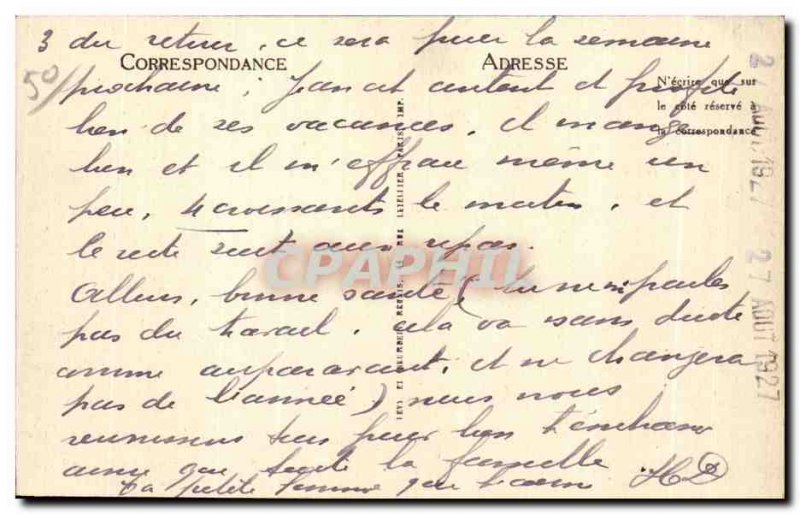 3 du retour, ce sera pour la semaine
CORRESPONDANCE
ADRESSE
50/
prochaine ; Jean est content et profite
N'écrire que sur
le côté réservé à
la correspondance
bien de ses vacances, il mange
bien et il m'effraie même un
peu, 4 croissants le matin, et
le reste suit aux repas.
Allons, bonne santé (tu ne me parles
pas du travail, cela va sans doute
comme auparavant, et ne changera
pas de l'année) nous nous
réunissons tous pour bien t'embrasser
ainsi que toute la famille
ta petite femme qui t'aime
HD
LEVY ET NEURDEIN RÉUNIS, 44 RUE LETELLIER, PARIS IMP.
27 AOUT 1927
27 AOUT 1927
CPAPHIL